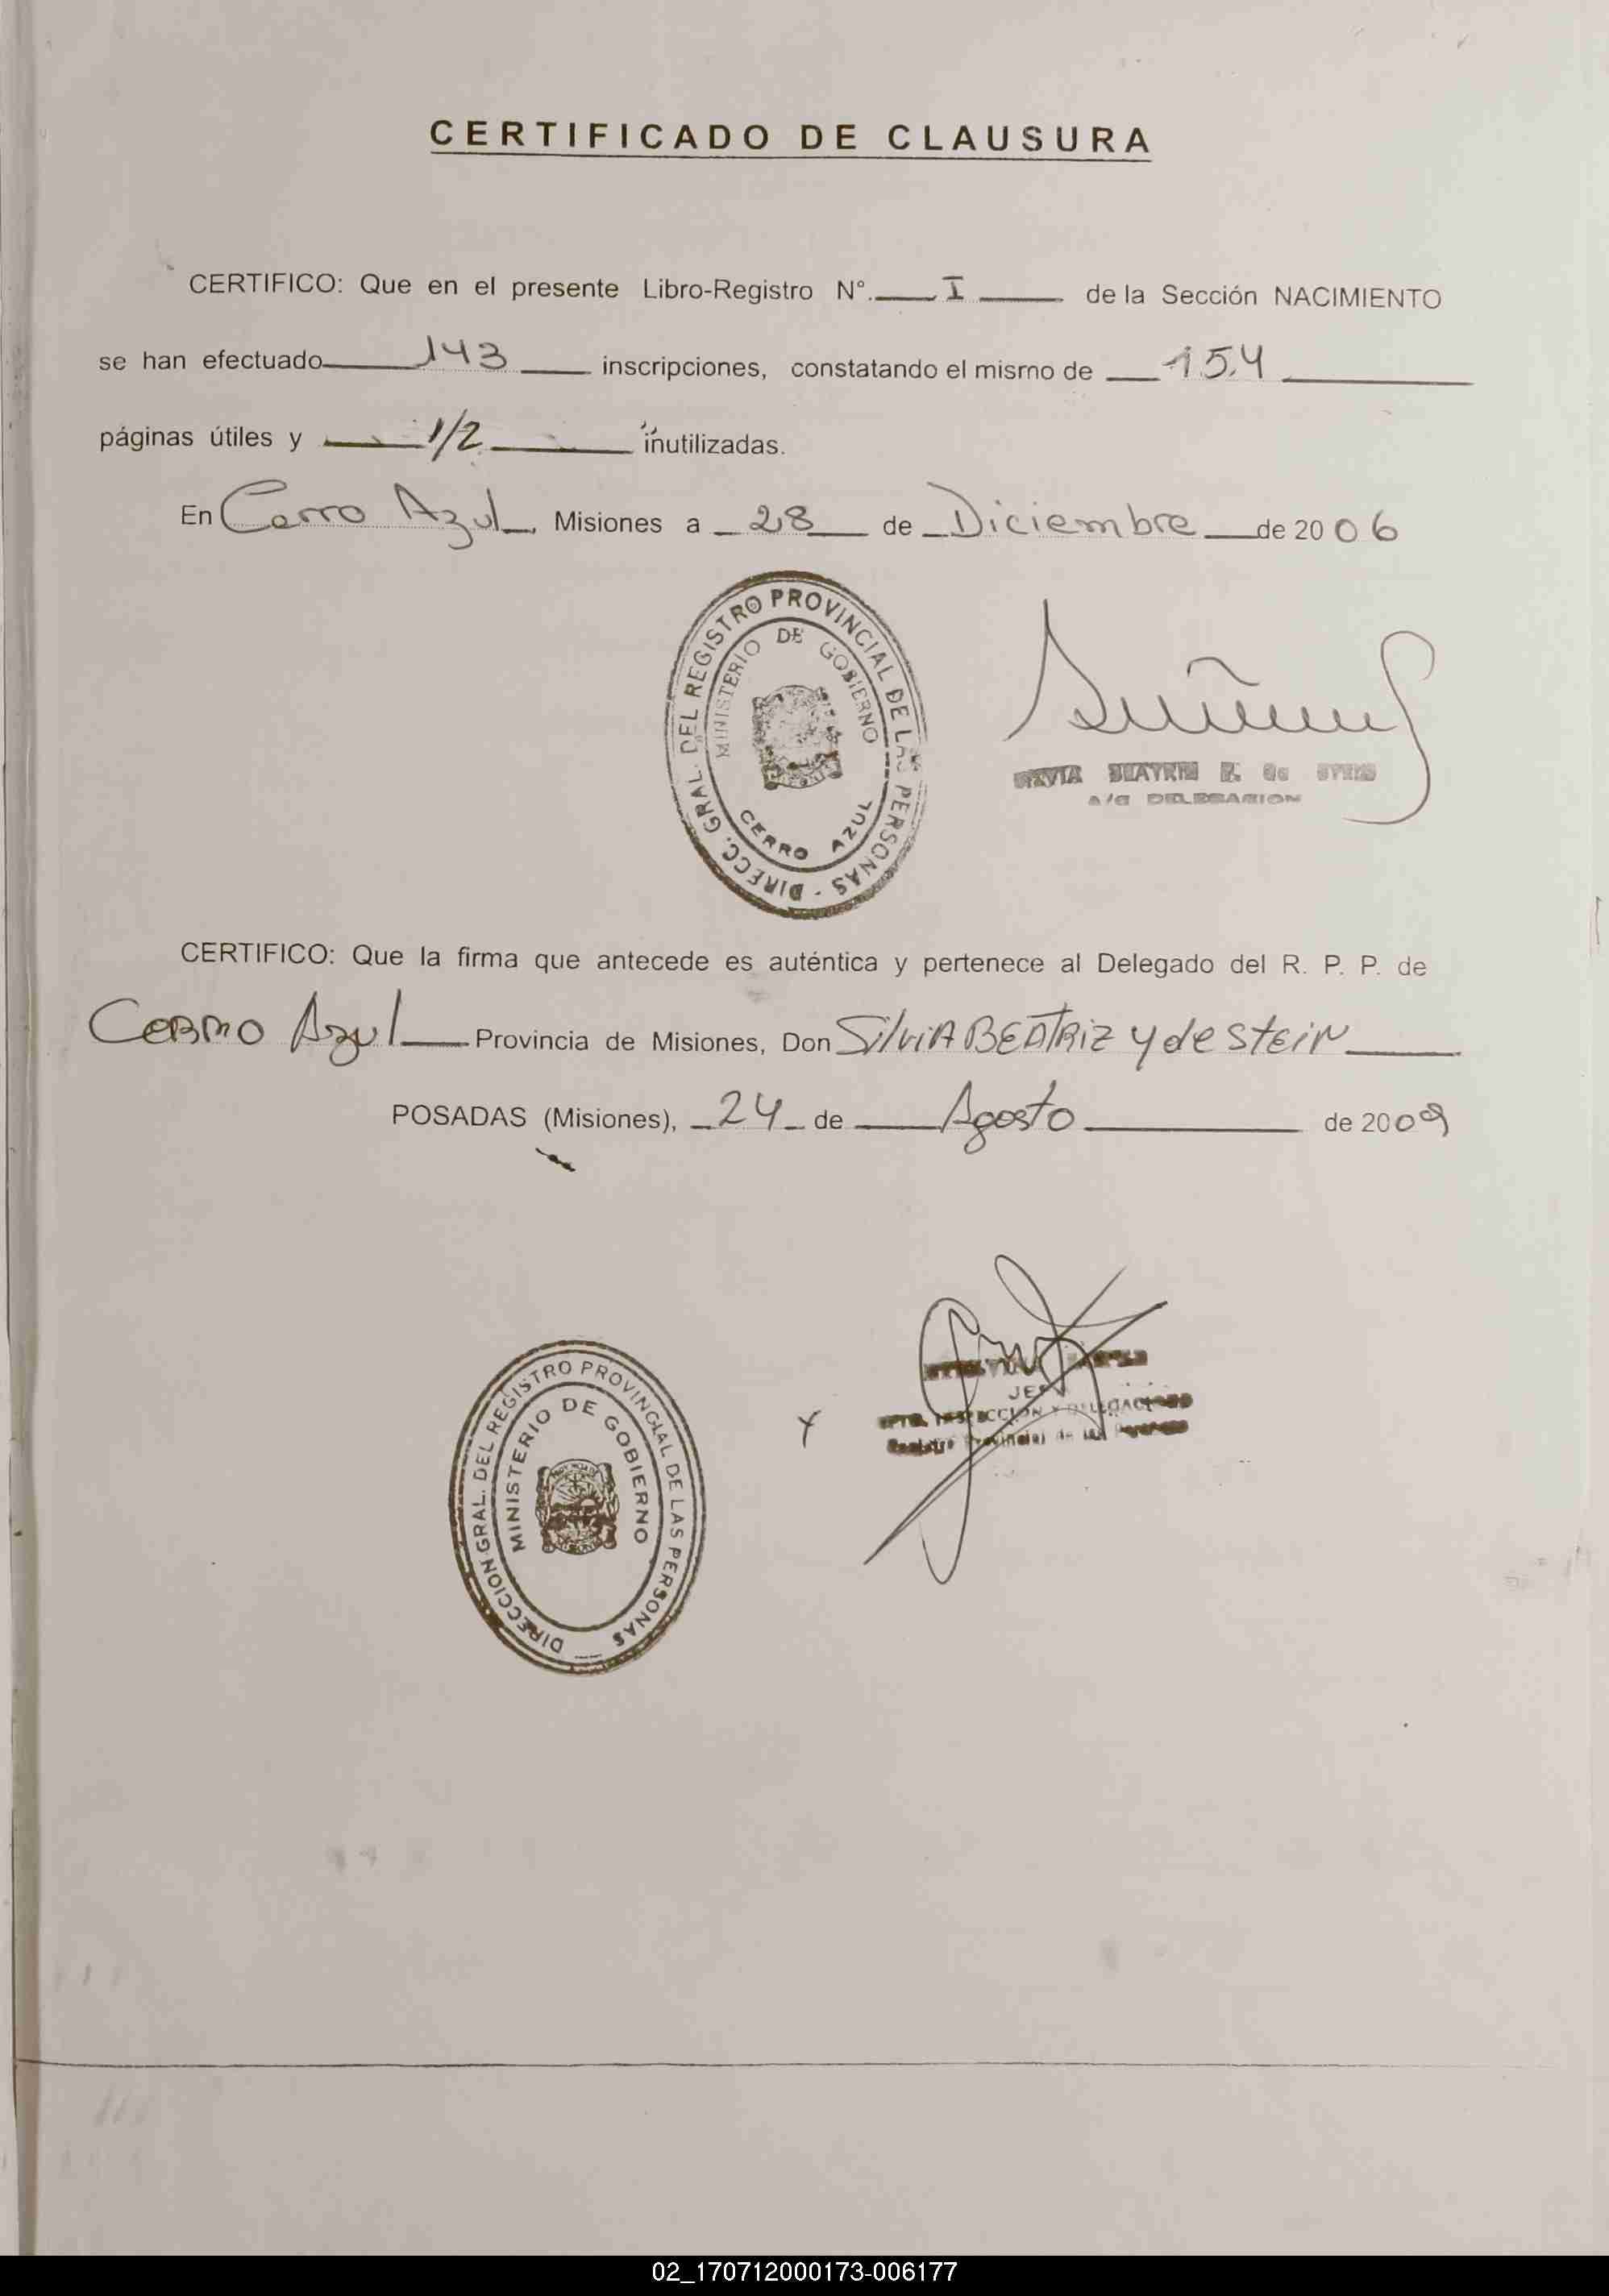 CERTIFICADO DE CLAUSURA
CERTIFICO: Que en el presente Libro-Registro Nº. I de la Sección NACIMIENTO
se han efectuado 143 inscripciones, constatando el mismo de 154
páginas útiles y 1/2 inutilizadas.
En Cerro Azul, Misiones a 28 de Diciembre de 2006
DIRECC. GRAL. DEL REGISTRO PROVINCIAL DE LAS PERSONAS -
MINISTERIO DE GOBIERNO
CERRO AZUL
BEATRIZ
A/C DELEGACION
CERTIFICO: Que la firma que antecede es auténtica y pertenece al Delegado del R. P. P. de
Cerro Azul Provincia de Misiones, Don SilviA BEATRiZ Y de stein
POSADAS (Misiones), 24 de Agosto de 2009
DIRECCION GRAL. DEL REGISTRO PROVINCIAL DE LAS PERSONAS
MINISTERIO DE GOBIERNO
JEFE
DPTO. INSPECCION Y DELEGACIONES
Registro Provincial de las Personas
02_170712000173-006177